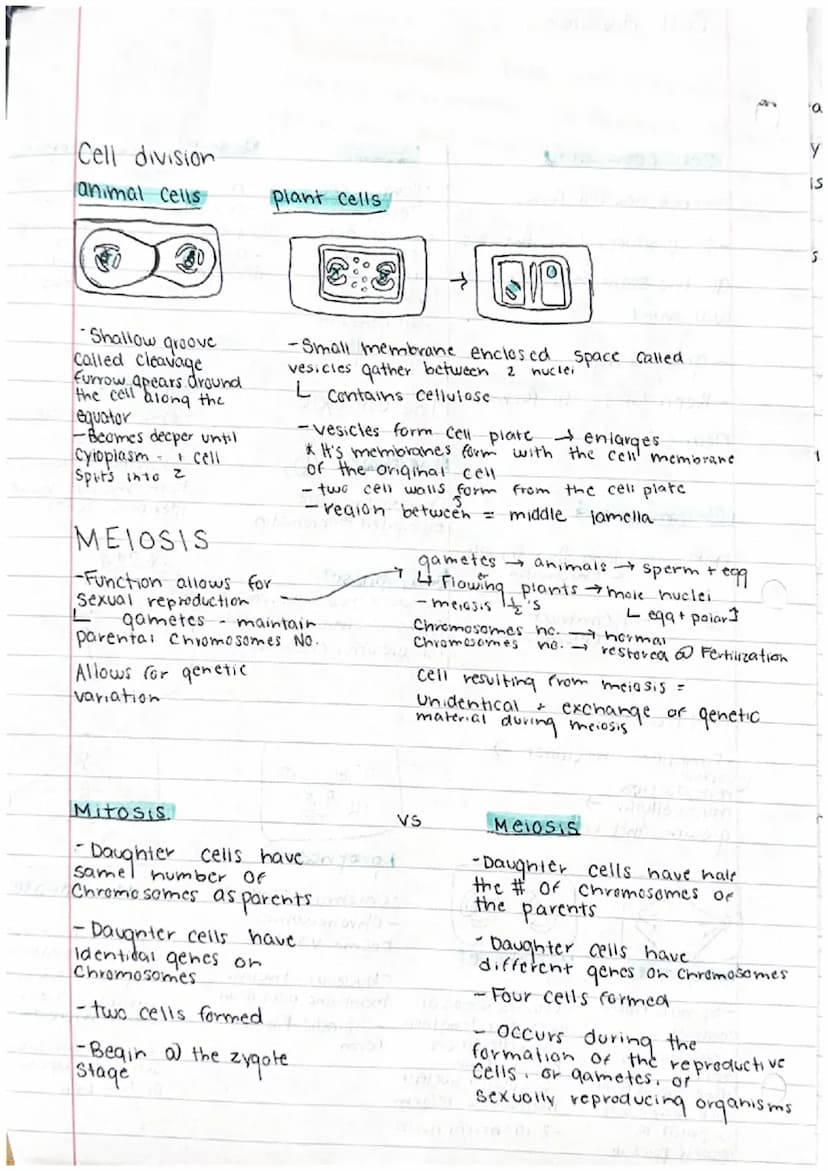 Cell division
animal cells
- Shallow groove
called cleavage
furrow apears around
the cell along the
equator
- Becmes decper until
cytoplasm - + cell
spits into 2
plant cells
- Small membrane enclosed space called
vesicles gather between 2 nuclei
↳ contains cellulose
- vesicles form cell plate → enlarges
* It's membranes form with the cell membrane
of the original cell
- two cell walls form from the cell plate
- region between = middle lamella
MEIOSIS
- Function allows for
sexual reproduction
↳ gametes - maintain
parental chromosomes NO.
Allows for genetic
variation
gametes → animals → sperm + egg
↳ Flowing plants → mole nuclei
- meiosis ½'s ↳ egg + polar
Chromosomes no. → normal
Chromosomes no. → restored @ Fertilization
Cell resulting from meiosis =
Unidentical + exchange of genetic
material during meiosis
Mitosis
vs
Meiosis
- Daughter cells have
same number of
Chromosomes as parents
- Daughter cells have
identidal genes on
chromosomes
- two cells formed
- Begin @ the zygote
stage
- Daughter cells have half
the # of chromosomes of
the parents
- Daughter cells have
different genes on chromosomes
- Four cells formed
- Occurs during the
formation of the reproductive
cells, or gametes, of
sexually reproducing organisms